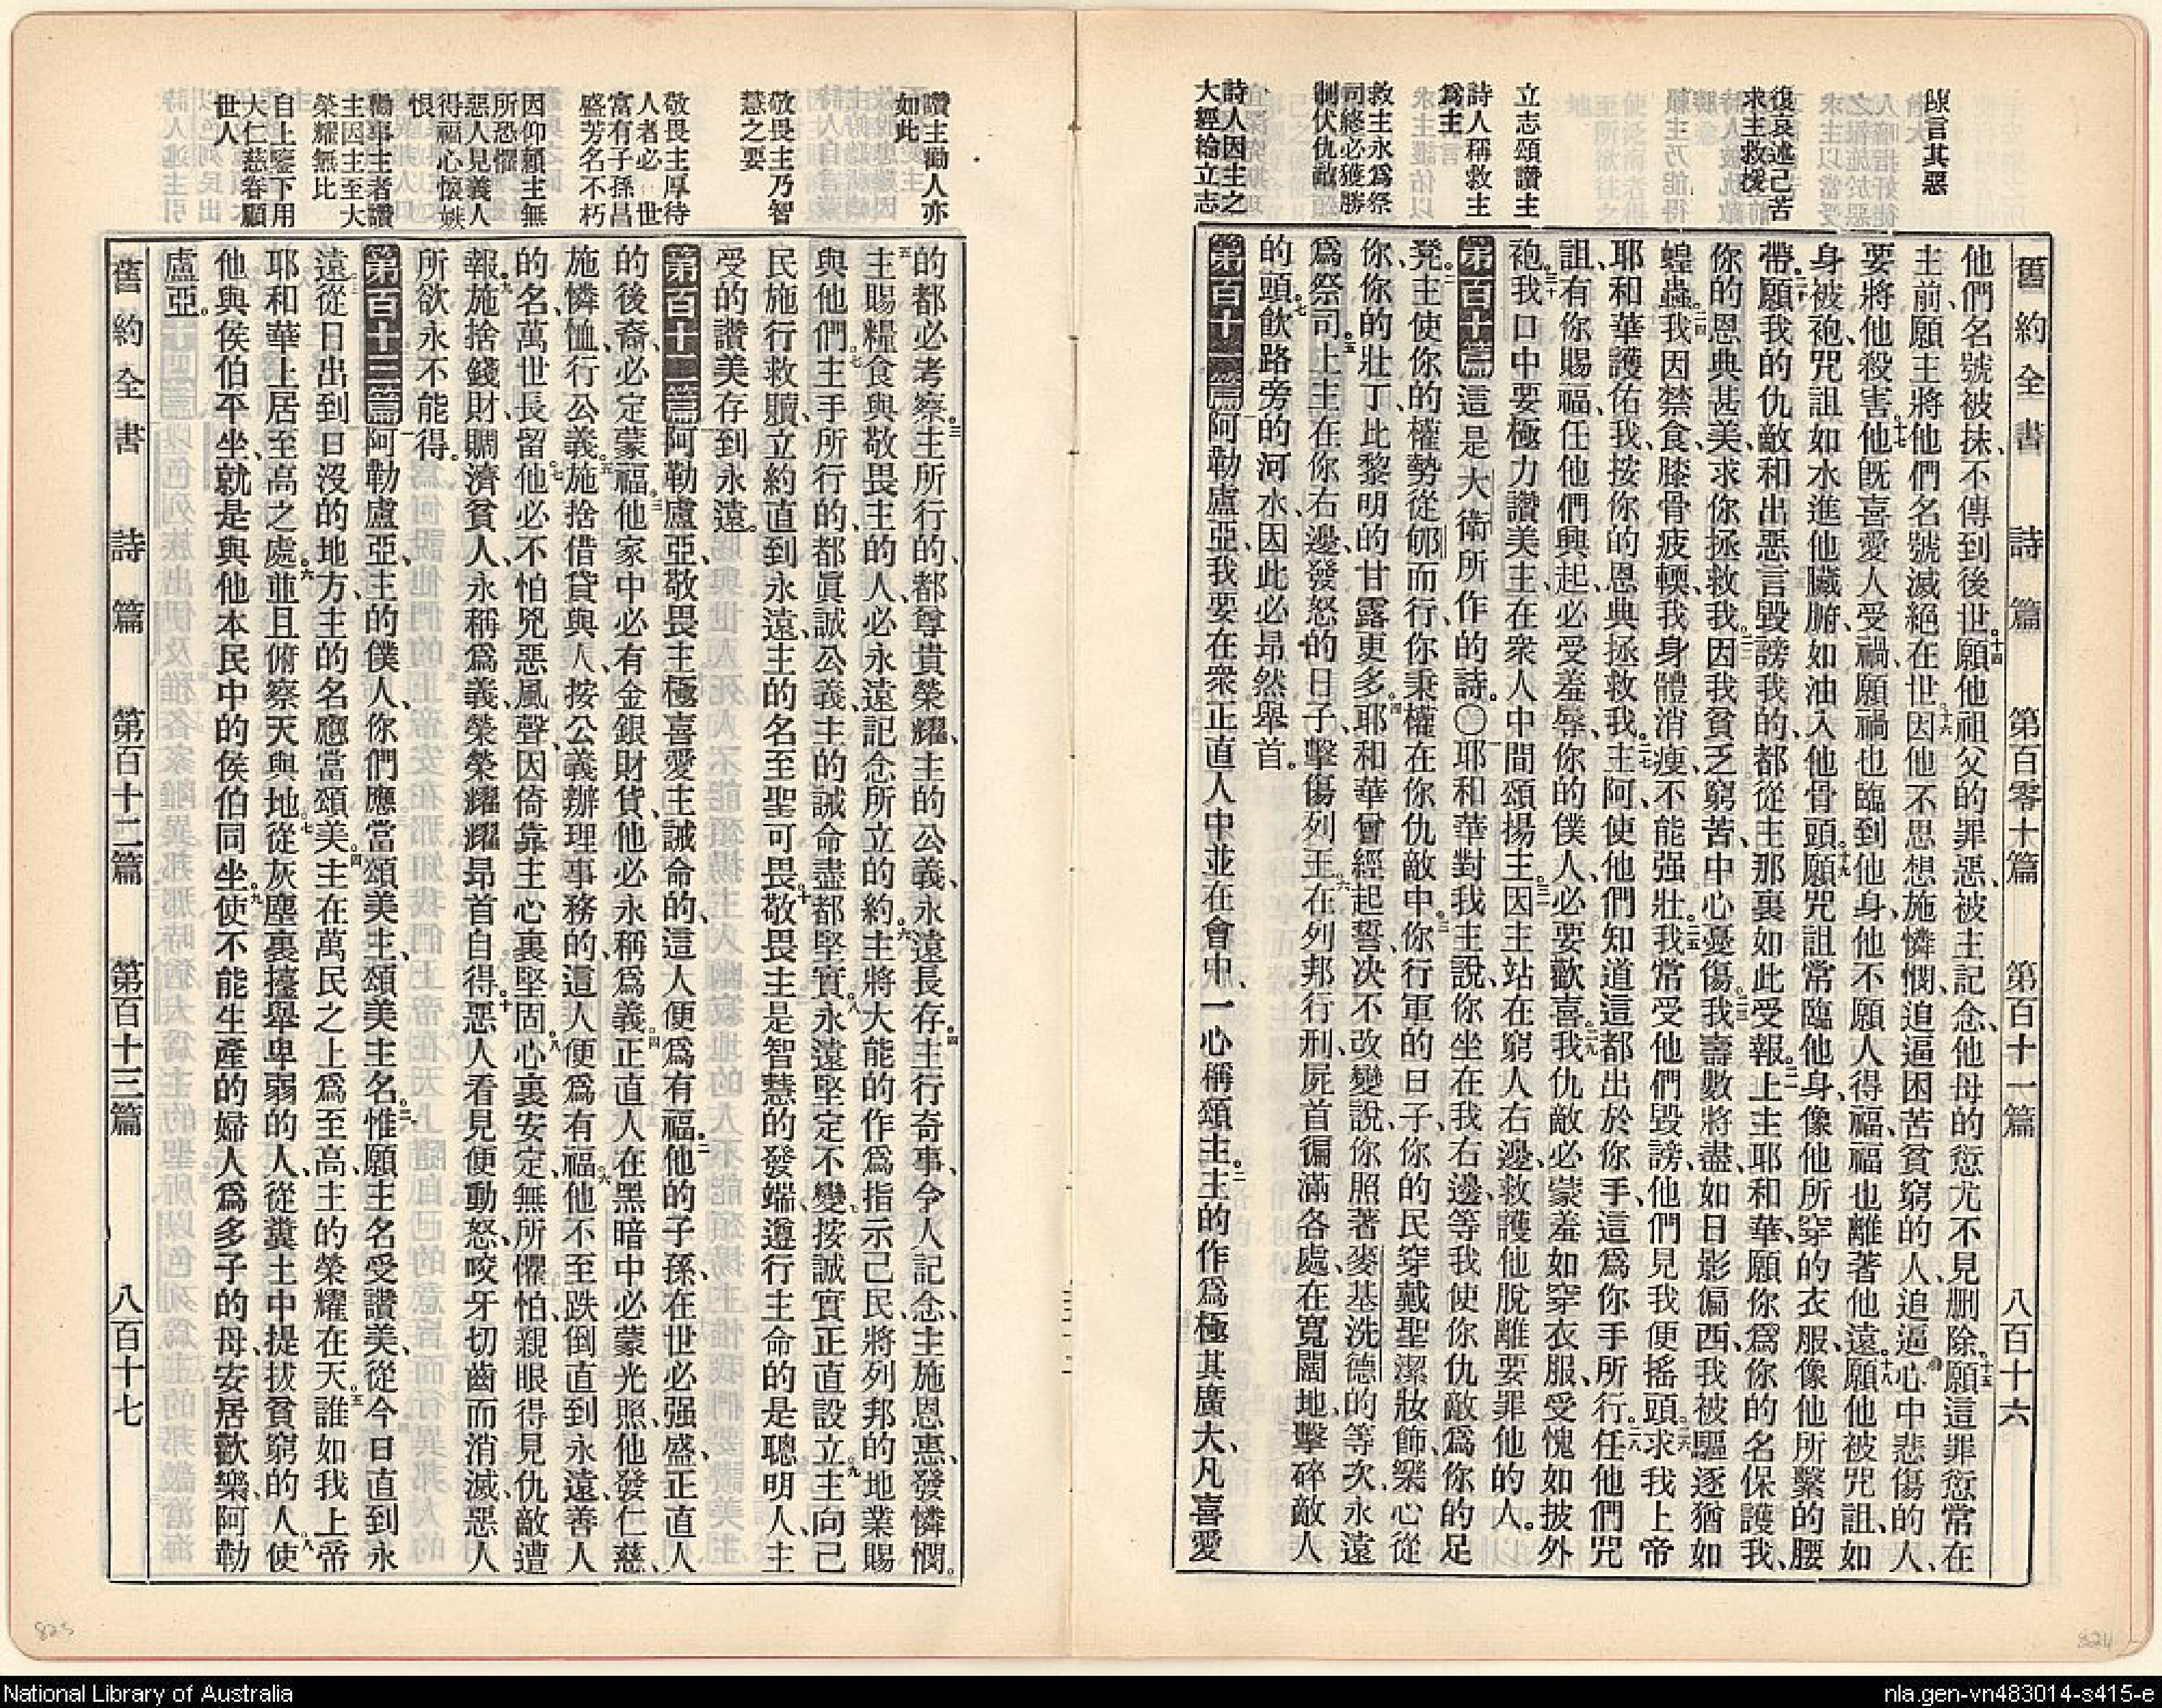 舊約全書 詩篇 第百零十篇 第百十一篇 八百十六
言其惡
復哀述己苦
求主救援
立志頌讚主
詩人稱救主
爲主
救主永爲祭
司終必獲勝
制伏仇敵
詩人因主之
大經綸立志
他們名號被抹、不傳到後世。十四願他祖父的罪惡、被主記念、他母的愆尤不見刪除。十五願這罪愆常在
主前、願主將他們名號滅絕在世。十六因他不思想施憐憫、追逼困苦貧窮的人、追逼心中悲傷的人、
要將他殺害。十七他旣喜愛人受禍、願禍也臨到他身、他不願人得福、福也離著他遠。十八願他被咒詛、如
身被袍、咒詛如水進他臟腑、如油入他骨頭。十九願咒詛常臨他身、像他所穿的衣服、像他所繫的腰
帶。二十願我的仇敵和出惡言毀謗我的、都從主那裏如此受報。二一上主耶和華、願你爲你的名保護我、
你的恩典甚美、求你拯救我。二二因我貧乏窮苦、中心憂傷。二三我壽數將盡、如日影偏西、我被驅逐猶如
蝗蟲。二四我因禁食、膝骨疲輭、我身體消瘦、不能强壯。二五我常受他們毀謗、他們見我便搖頭。二六求我上帝
耶和華護佑我、按你的恩典拯救我。二七主阿、使他們知道這都出於你手、這爲你手所行。二八任他們咒
詛、有你賜福、任他們興起、必受羞辱、你的僕人、必要歡喜。二九我仇敵必蒙羞如穿衣服、受愧如披外
袍。三十我口中要極力讚美主、在衆人中間頌揚主。三一因主站在窮人右邊、救護他脫離要罪他的人。
第百十篇 這是大衛所作的詩。〇一耶和華對我主說、你坐在我右邊、等我使你仇敵爲你的足
凳。二主使你的權勢從郇而行、你秉權在你仇敵中。三你行軍的日子、你的民穿戴聖潔妝飾、樂心從
你、你的壯丁、比黎明的甘露更多。四耶和華曾經起誓、决不改變、說、你照著麥基洗德的等次、永遠
爲祭司。五上主在你右邊、發怒的日子、擊傷列王。六在列邦行刑、屍首徧滿各處、在寬闊地、擊碎敵人
的頭。七飲路旁的河水、因此必昂然舉首。
第百十一篇 一阿勒盧亞、我要在衆正直人中並在會中、一心稱頌主。二主的作爲極其廣大、凡喜愛
讚主勸人亦
如此
敬畏主乃智
慧之要
敬畏主厚待
人者必 世
富有子孫昌
盛芳名不朽
因仰賴主無
所恐懼
惡人見義人
得福心懷嫉
恨
勸事主者讚
主因主至大
榮耀無比
自上鑒下用
大仁慈眷顧
世人
的都必考察。三主所行的、都尊貴榮耀、主的公義、永遠長存。四主行奇事、令人記念、主施恩惠、發憐憫。
五主賜糧食與敬畏主的人、必永遠記念所立的約。六主將大能的作爲指示己民、將列邦的地業賜
與他們。七主手所行的、都眞誠公義、主的誡命盡都堅實。八永遠堅定不變、按誠實正直設立。九主向己
民施行救贖、立約直到永遠、主的名至聖可畏。十敬畏主是智慧的發端、遵行主命的是聰明人、主
受的讚美存到永遠。
第百十二篇 一阿勒盧亞、敬畏主極喜愛主誡命的、這人便爲有福。二他的子孫、在世必强盛、正直人
的後裔、必定蒙福。三他家中必有金銀財貨、他必永稱爲義。四正直人在黑暗中必蒙光照、他發仁慈、
施憐恤、行公義。五施捨借貸與人、按公義辦理事務的、這人便爲有福。六他不至跌倒直到永遠、善人
的名、萬世長留。七他必不怕兇惡風聲、因倚靠主、心裏堅固。八心裏安定、無所懼怕、親眼得見仇敵遭
報。九施捨錢財、賙濟貧人、永稱爲義、榮榮耀耀、昂首自得。十惡人看見便動怒、咬牙切齒而消滅、惡人
所欲、永不能得。
第百十三篇 一阿勒盧亞、主的僕人、你們應當頌美主、頌美主名。二惟願主名受讚美、從今日直到永
遠。三從日出到日沒的地方、主的名應當頌美。四主在萬民之上爲至高、主的榮耀在天。五誰如我上帝
耶和華、上居至高之處。六並且俯察天與地。七從灰塵裏擡舉卑弱的人、從糞土中提拔貧窮的人。八使
他與侯伯平坐、就是與他本民中的侯伯同坐。九使不能生產的婦人爲多子的母、安居歡樂、阿勒
盧亞。
舊約全書 詩篇 第百十二篇 第百十三篇 八百十七
825
824
National Library of Australia
nla.gen-vn483014-s415-e